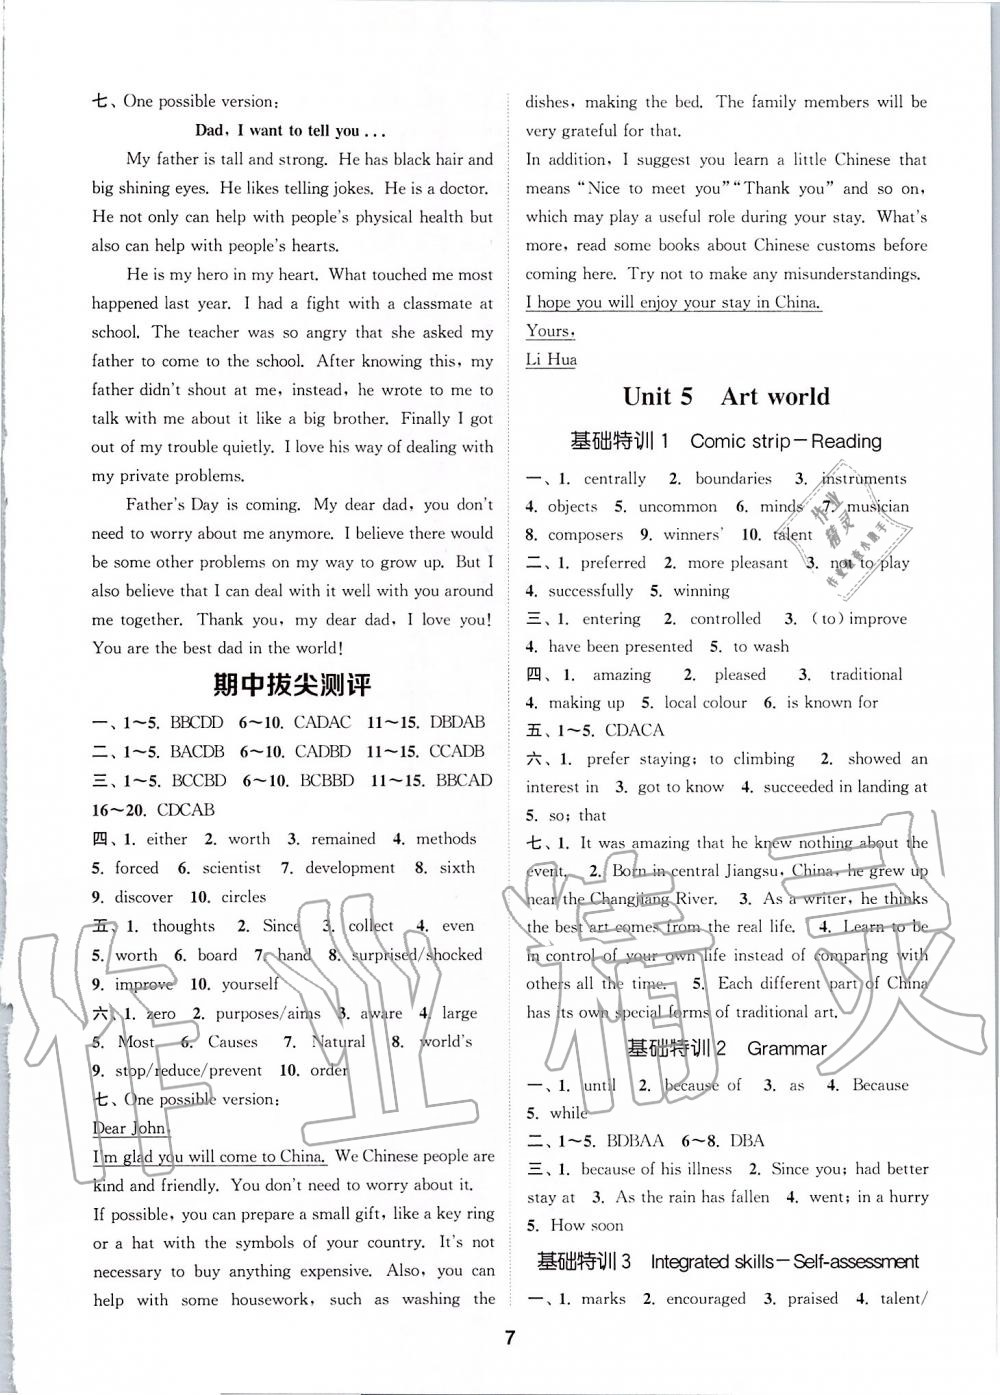 七、One possible version:
Dad, I want to tell you...
My father is tall and strong. He has black hair and
big shining eyes. He likes telling jokes. He is a doctor.
He not only can help with people's physical health but
also can help with people's hearts.
He is my hero in my heart. What touched me most
happened last year. I had a fight with a classmate at
school. The teacher was so angry that she asked my
father to come to the school. After knowing this, my
father didn't shout at me, instead, he wrote to me to
talk with me about it like a big brother. Finally I got
out of my trouble quietly. I love his way of dealing with
my private problems.
Father's Day is coming. My dear dad, you don't
need to worry about me anymore. I believe there would
be some other problems on my way to grow up. But I
also believe that I can deal with it well with you around
me together. Thank you, my dear dad, I love you!
You are the best dad in the world!
期中拔尖测评
一、1～5. BBCDD 6～10. CADAC 11～15. DBDAB
二、1～5. BACDB 6～10. CADBD 11～15. CCADB
三、1～5. BCCBD 6～10. BCBBD 11～15. BBCAD
16～20. CDCAB
四、1. either 2. worth 3. remained 4. methods
5. forced 6. scientist 7. development 8. sixth
9. discover 10. circles
五、1. thoughts 2. Since 3. collect 4. even
5. worth 6. board 7. hand 8. surprised/shocked
9. improve 10. yourself
六、1. zero 2. purposes/aims 3. aware 4. large
5. Most 6. Causes 7. Natural 8. world's
9. stop/reduce/prevent 10. order
七、One possible version:
Dear John,
I'm glad you will come to China. We Chinese people are
kind and friendly. You don't need to worry about it.
If possible, you can prepare a small gift, like a key ring
or a hat with the symbols of your country. It's not
necessary to buy anything expensive. Also, you can
help with some housework, such as washing the
dishes, making the bed. The family members will be
very grateful for that.
In addition, I suggest you learn a little Chinese that
means “Nice to meet you”“Thank you” and so on,
which may play a useful role during your stay. What's
more, read some books about Chinese customs before
coming here. Try not to make any misunderstandings.
I hope you will enjoy your stay in China.
Yours,
Li Hua
Unit 5 Art world
基础特训1 Comic strip－Reading
一、1. centrally 2. boundaries 3. instruments
4. objects 5. uncommon 6. minds 7. musician
8. composers 9. winners' 10. talent
二、1. preferred 2. more pleasant 3. not to play
4. successfully 5. winning
三、1. entering 2. controlled 3. (to) improve
4. have been presented 5. to wash
四、1. amazing 2. pleased 3. traditional
4. making up 5. local colour 6. is known for
五、1～5. CDACA
六、1. prefer staying; to climbing 2. showed an
interest in 3. got to know 4. succeeded in landing at
5. so; that
七、1. It was amazing that he knew nothing about the
event. 2. Born in central Jiangsu, China, he grew up
near the Changjiang River. 3. As a writer, he thinks
the best art comes from the real life. 4. Learn to be
in control of your own life instead of comparing with
others all the time. 5. Each different part of China
has its own special forms of traditional art.
基础特训2 Grammar
一、1. until 2. because of 3. as 4. Because
5. while
二、1～5. BDBAA 6～8. DBA
三、1. because of his illness 2. Since you; had better
stay at 3. As the rain has fallen 4. went; in a hurry
5. How soon
基础特训3 Integrated skills－Self-assessment
一、1. marks 2. encouraged 3. praised 4. talent/
7
作业精灵
作业精灵